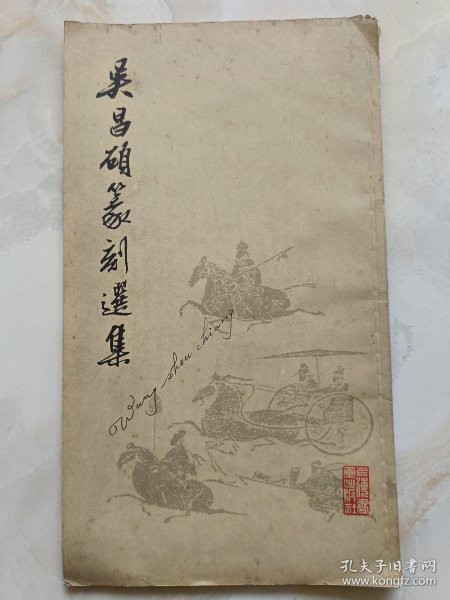 吴昌碩篆刻選集
Wang shou chiang
上海書
畫出版社
孔夫子旧书网
www.kongfz.com